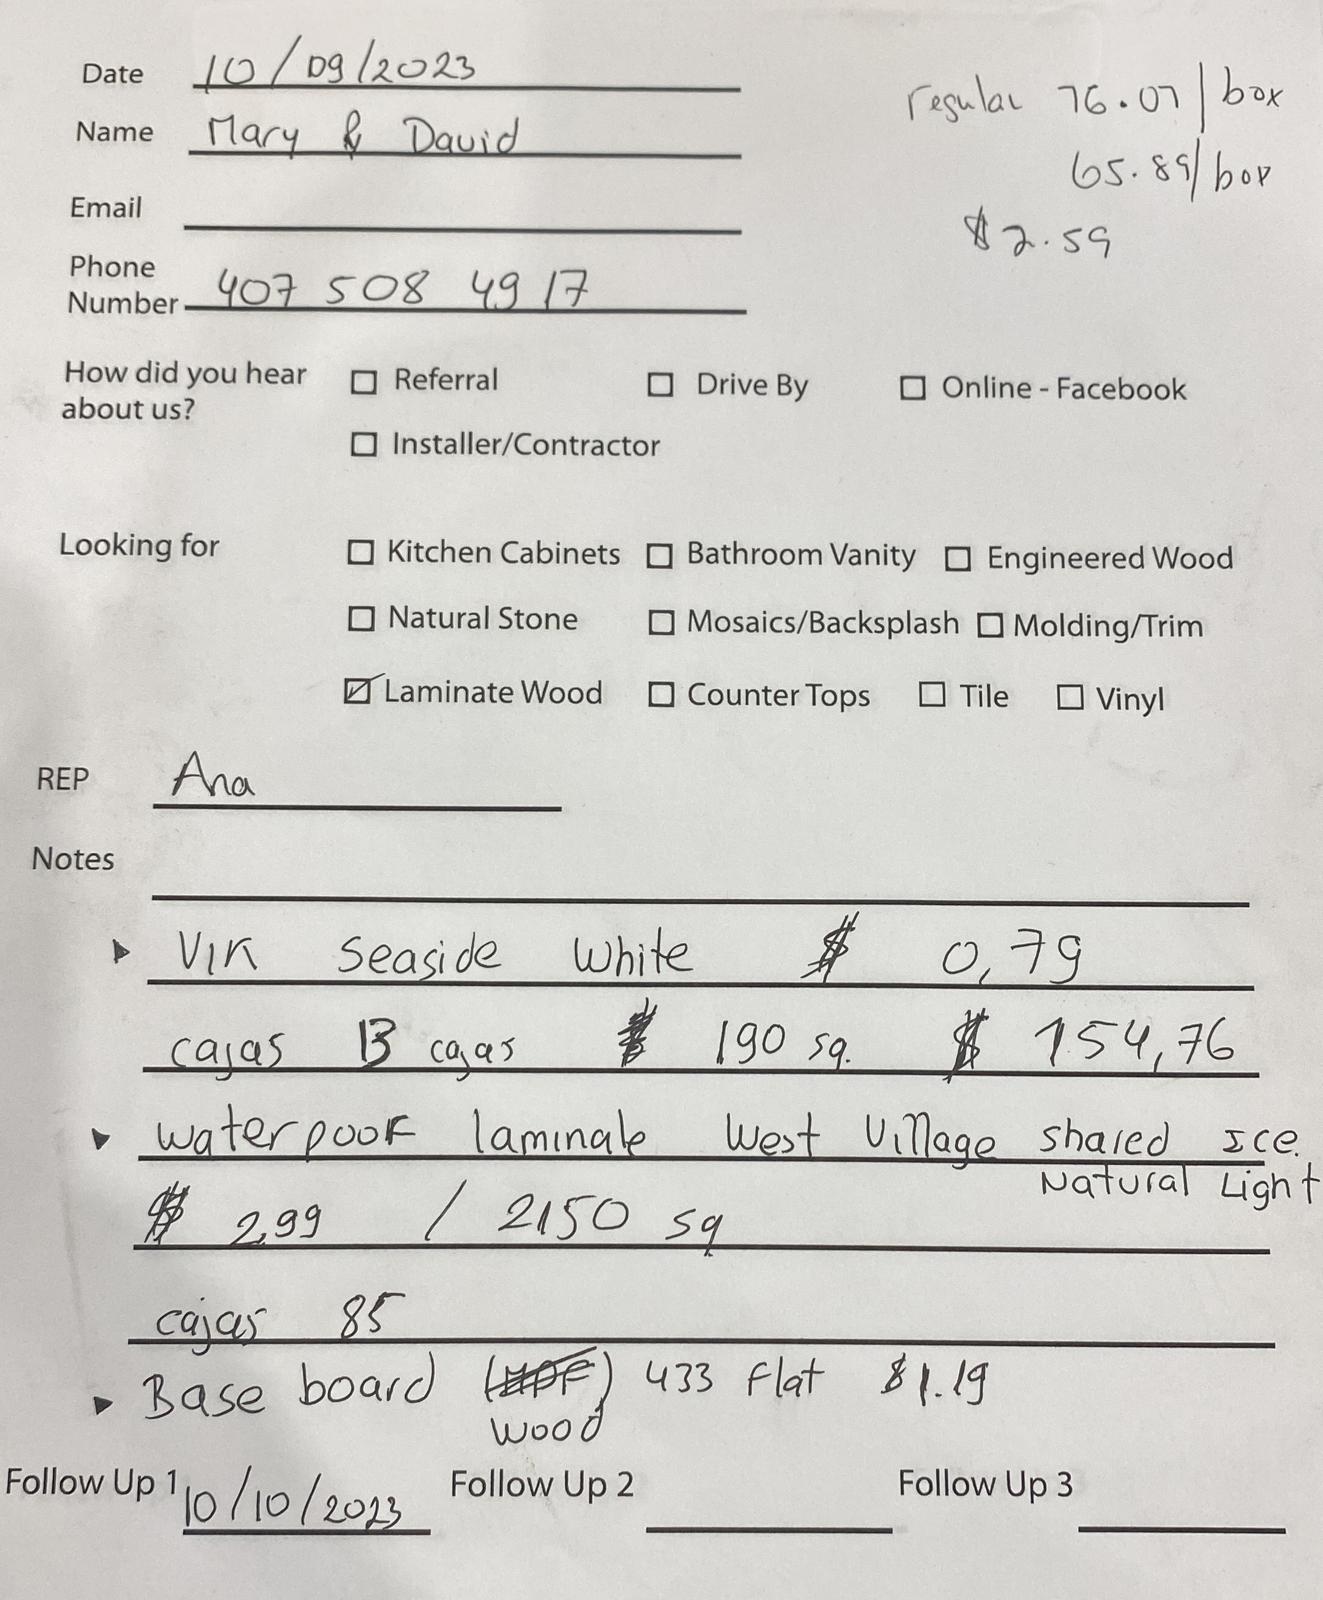 Date 10/09/2023
regular 76.07/box
Name Mary & David
65.89/box
Email
$2.59
Phone
Number 407 508 4917
How did you hear
about us?
☐ Referral ☐ Drive By ☐ Online - Facebook
☐ Installer/Contractor
Looking for ☐ Kitchen Cabinets ☐ Bathroom Vanity ☐ Engineered Wood
☐ Natural Stone ☐ Mosaics/Backsplash ☐ Molding/Trim
☑ Laminate Wood ☐ Counter Tops ☐ Tile ☐ Vinyl
REP Ana
Notes
▸ VIK Seaside White $ 0,79
cajas 13 cajas $ 190 sq. $ 154,76
▸ waterpoof laminate West Village shared Ice.
Natural Light
$ 2,99 / 2150 sq
cajas 85
▸ Base board ( ) 433 Flat $1.19
wood
Follow Up 1 10/10/2023 Follow Up 2 Follow Up 3